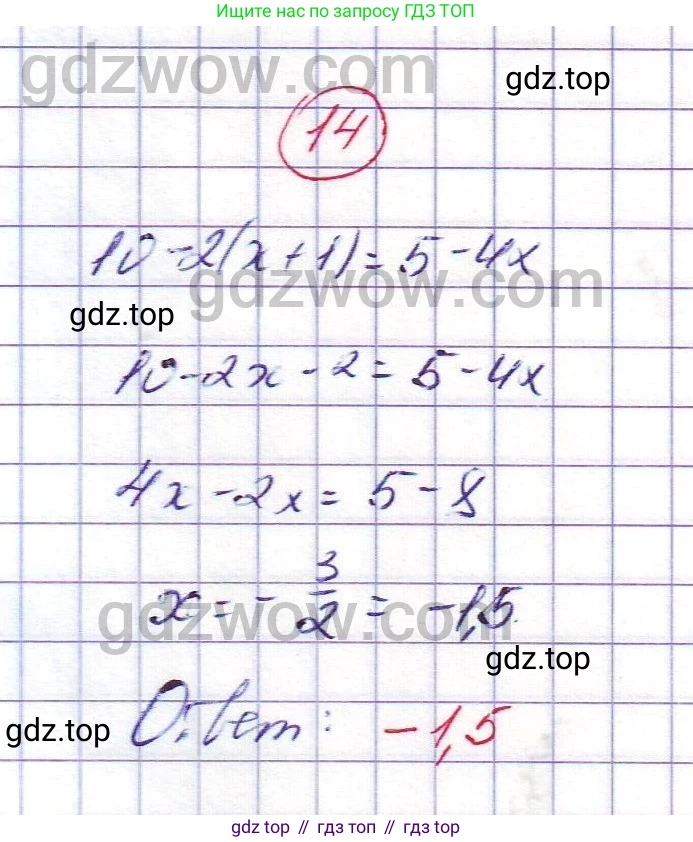 Ищите нас по запросу ГДЗ ТОП
gdzwow.com
gdz.top
14
10-2(x+1)=5-4x
gdzwow.com
gdz.top
10-2x-2=5-4x
4x-2x=5-8
x=-3/2=-1,5
gdzwow.com
gdz.top
Ответ: -1,5
gdz.top
gdz.top // гдз топ // gdz.top